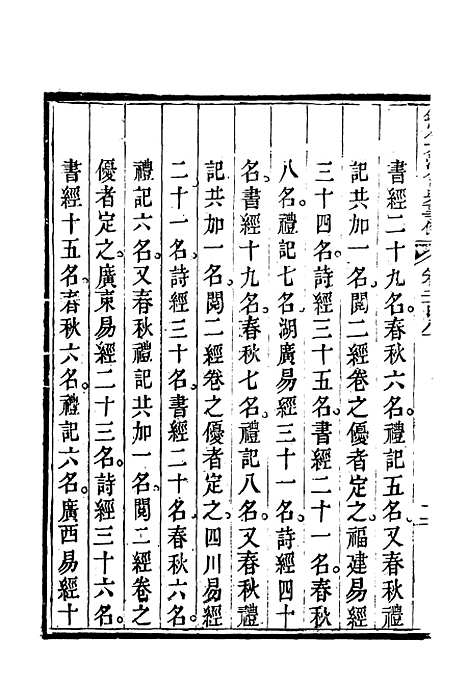 書經二十九名。春秋六名。禮記五名。又春秋禮
記共加一名。閱二經卷之優者定之。福建易經
三十四名。詩經三十五名。書經二十一名。春秋
八名。禮記七名。湖廣易經三十一名。詩經四十
名。書經十九名。春秋七名。禮記八名。又春秋禮
記共加一名。閱二經卷之優者定之。四川易經
二十一名。詩經三十名。書經二十名。春秋六名。
禮記六名。又春秋禮記共加一名。閱二經卷之
優者定之。廣東易經二十三名。詩經三十六名。
書經十五名。春秋六名。禮記六名。廣西易經十